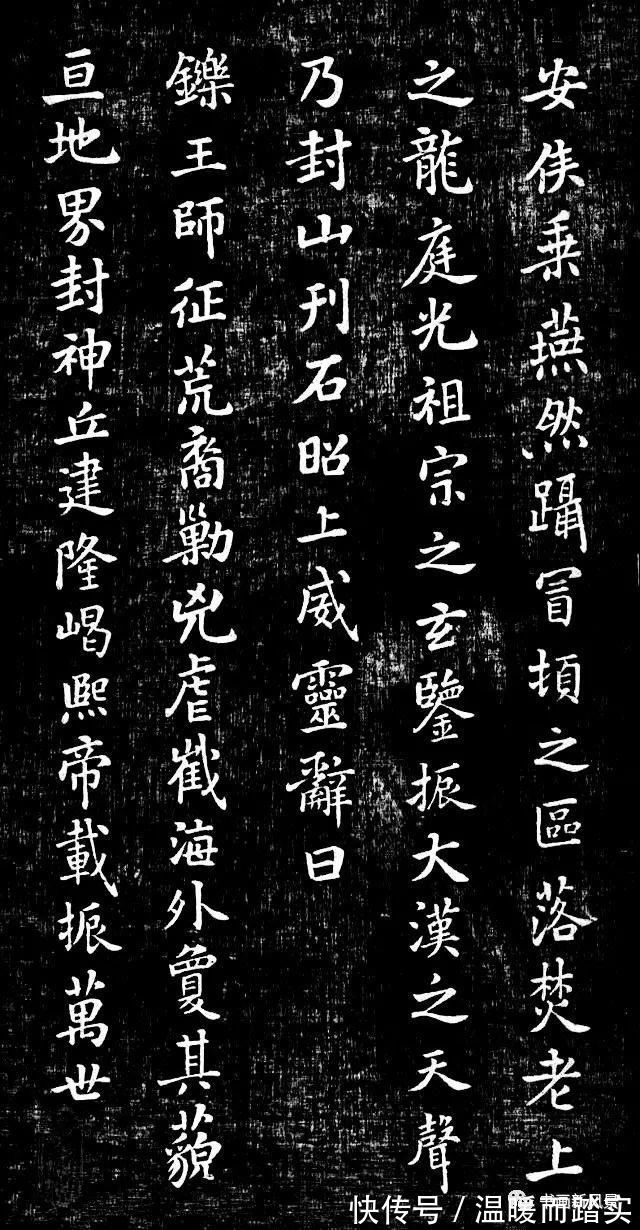 安侯乗燕然躡冒頓之區落焚老上
之龍庭光祖宗之玄鑒振大漢之天聲
乃封山刊石昭上威靈辭曰
鑠王師征荒裔勦兇虐截海外夐其藐
亘地界封神丘建隆嵑熙帝載振萬世
书画新风景
快传号 / 温暖而踏实